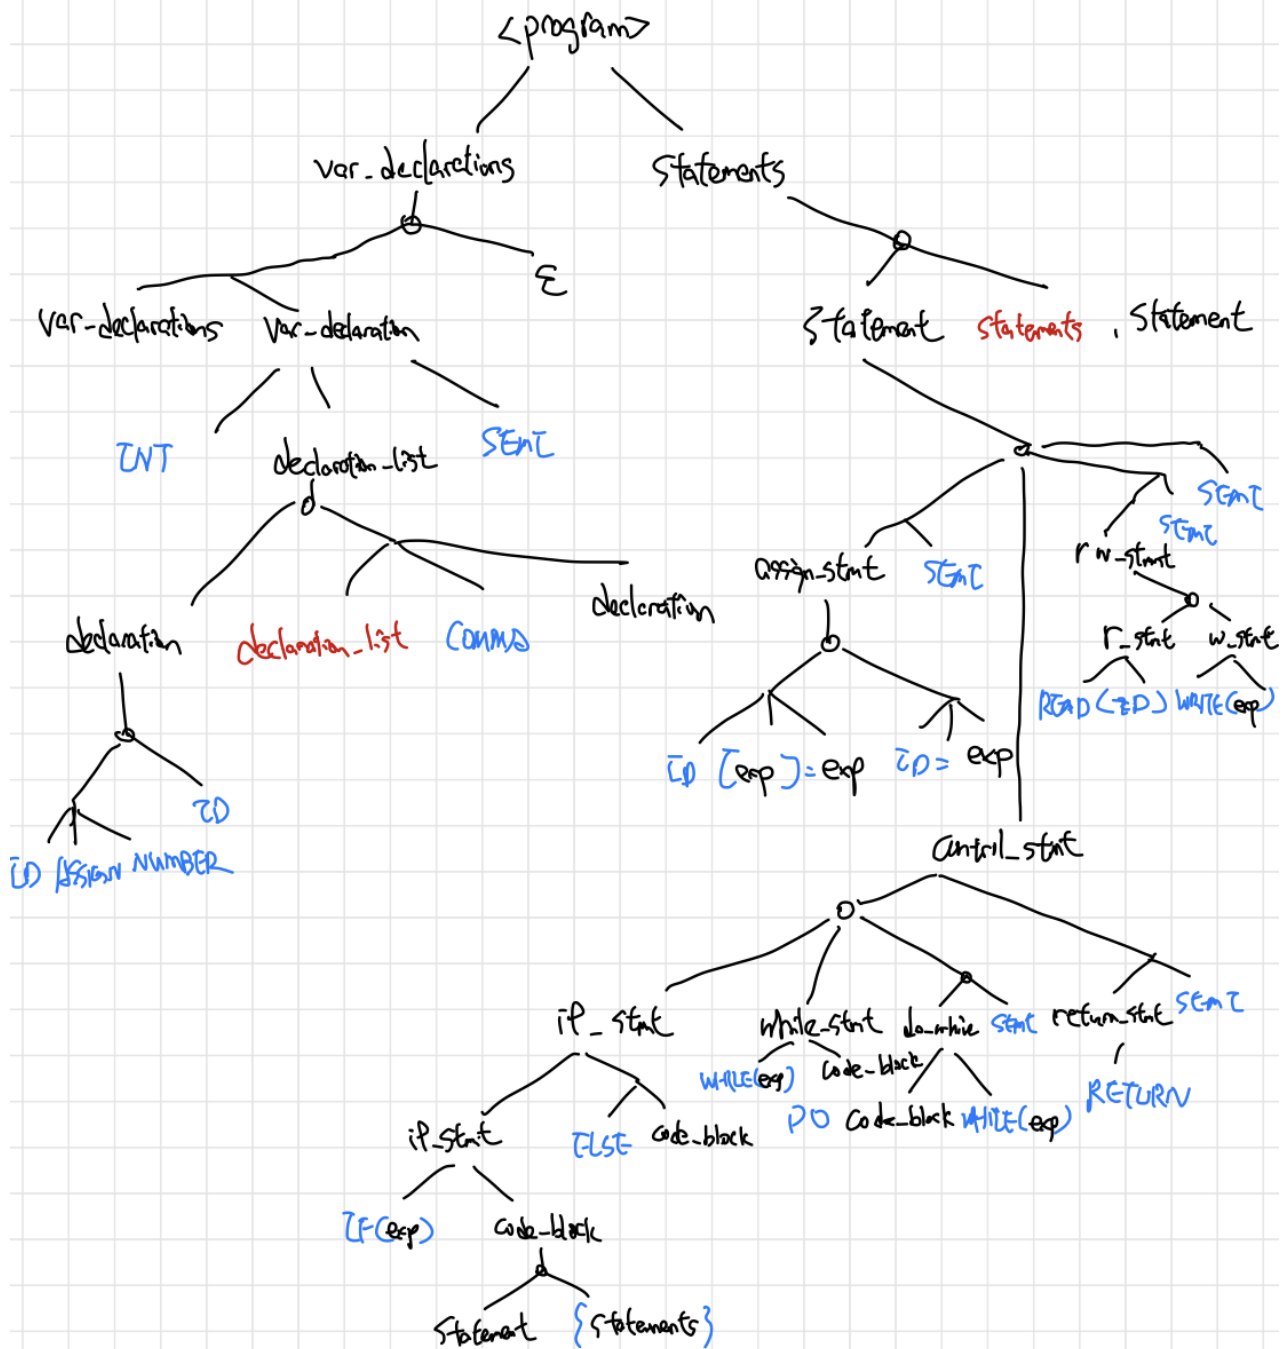 <program>
var_declarations statements
ε
var-declarations var-declaration statement statements , statement
INT declaration_list SEMI
SEMI
SEMI
rw_stmt
assign_stmt SEMI
declaration
declaration declaration_list COMMA r_stmt w_stmt
READ (ID) WRITE(exp)
ID [exp] = exp ID = exp
ID
ID ASSIGN NUMBER
control_stmt
if_stmt while_stmt do_while SEMI return_stmt SEMI
WHILE(exp) code_block
RETURN
DO code_block WHILE(exp)
if_stmt ELSE code_block
IF(exp) code_block
statement {statements}